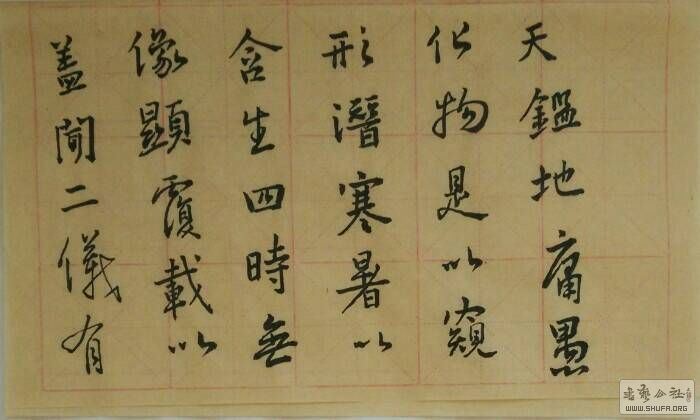 蓋聞二儀有
像顯覆載以
含生四時無
形潛寒暑以
化物是以窺
天鑑地庸愚
書藝公社
WWW.SHUFA.ORG